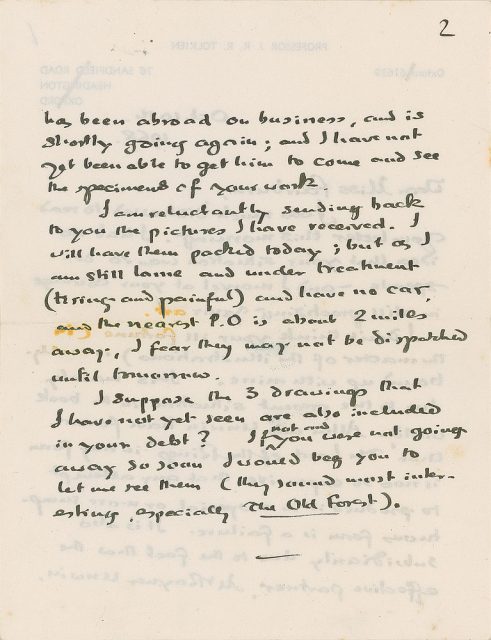 2
has been abroad on business, and is
shortly going again; and I have not
yet been able to get him to come and see
the specimens of your work.
I am reluctantly sending back
to you the pictures I have received. I
will have them packed today; but as I
am still lame and under treatment
(tiring and painful) and have no car,
and the nearest P.O is about 2 miles
away, I fear they may not be dispatched
until tomorrow.
I suppose the 3 drawings that
I have not yet seen are also included
in your debt? If not and you were not going
away so soon I would beg you to
let me see them (they sound most inter-
esting, especially The Old Forest).